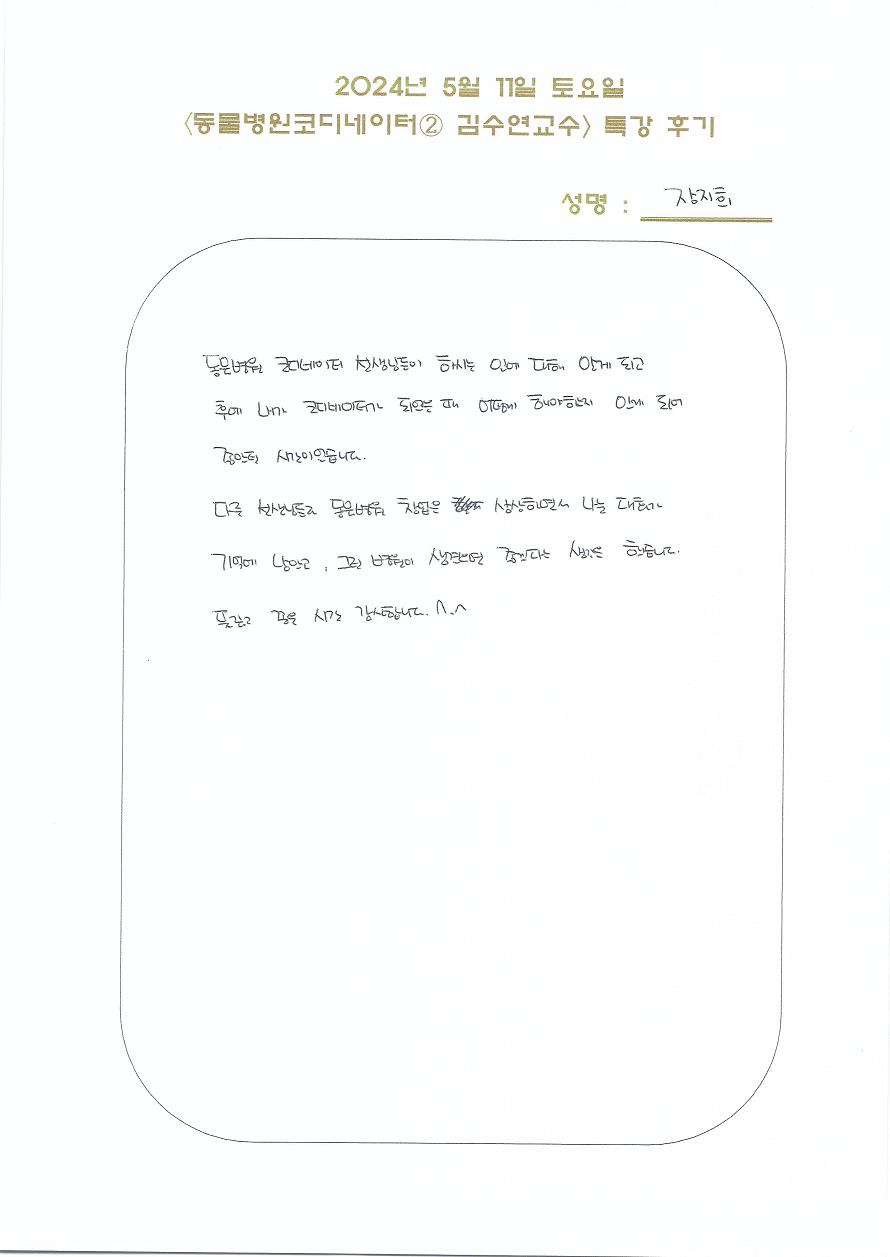 2024년 5월 11일 토요일
〈동물병원코디네이터② 김수연교수〉 특강 후기
성명 : 장지희
동물병원 코디네이터 선생님들이 하시는 일에 대해 알게 되고
후에 내가 코디네이터가 되었을 때 어떻게 해야할지 알게 되어
좋았던 시간이었습니다.
다른 선생님들과 동물병원 창업을 상상하면서 나눈 대화가
기억에 남았고, 그런 병원이 생긴다면 좋겠다는 생각도 했습니다.
뜻깊고 좋은 시간 감사합니다. ^.^